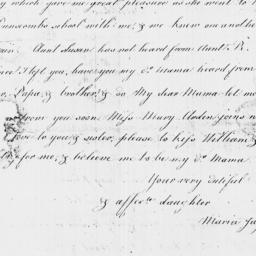 which gave me great pleasure as she went to
school with me, & we knew one anothe
Aunt Susan has not heard from Aunt R.
I left you, have you my dr. mama heard from
Papa, & brother, & so My dear Mama let me
from you soon Miss Mary joins
love to you & sister, please to kiss William &
for me, & believe me to be my dr. Mama
Your very dutiful
& affecte. daughter
Maria